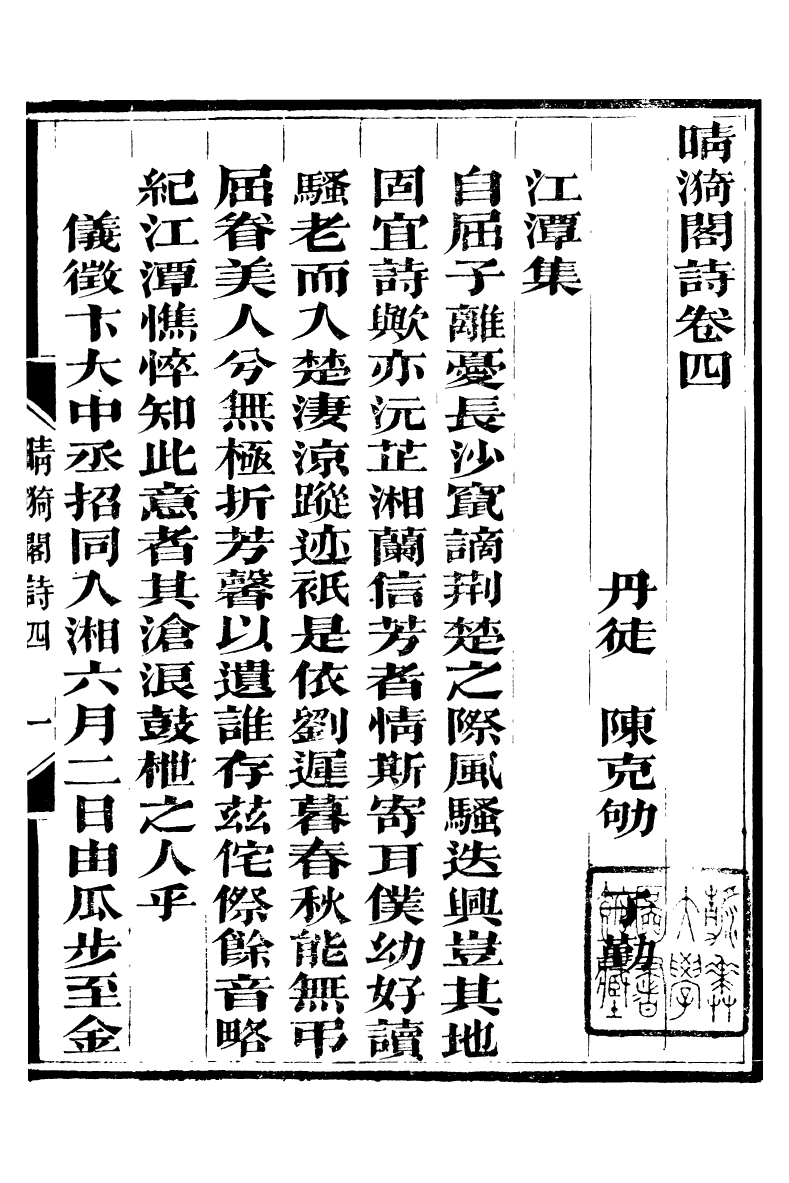 晴漪閣詩卷四
丹徒　陳克劬　子勤
江潭集
自屈子離憂長沙竄謫荆楚之際風騷迭興豈其地
固宜詩歟亦沅芷湘蘭信芳者情斯寄耳僕幼好讀
騷老而入楚淒涼蹤迹祇是依劉遲暮春秋能無弔
屈眷美人兮無極折芳馨以遺誰存茲侘傺餘音略
紀江潭憔悴知此意者其滄浪鼓枻之人乎
儀徵卞大中丞招同入湘六月二日由瓜步至金
晴漪閣詩四　一